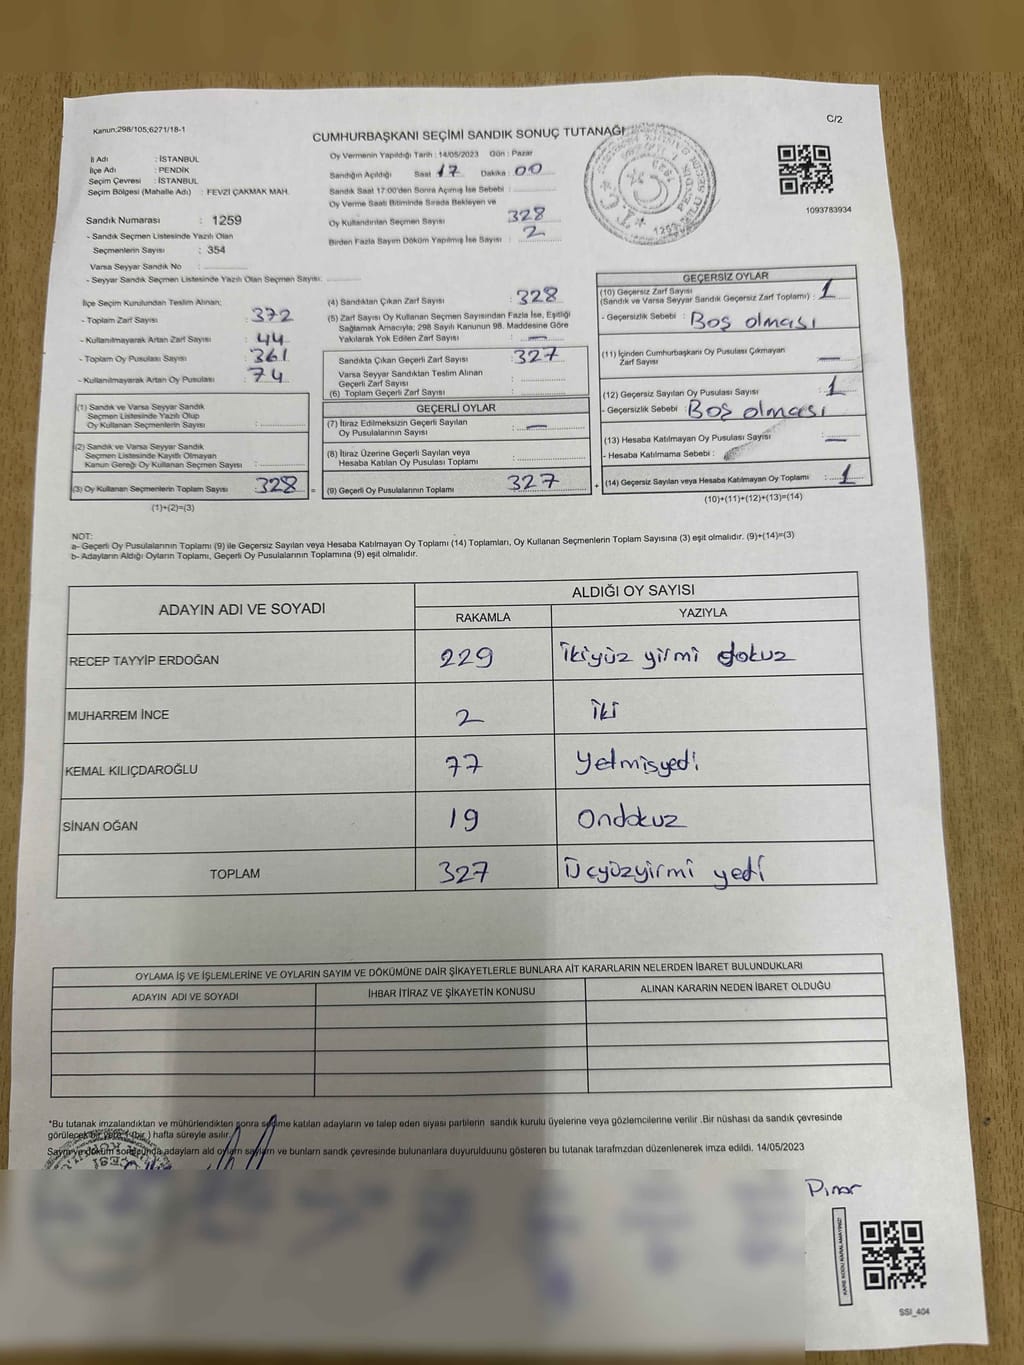 Kanun;298/105;6271/18-1
C/2
CUMHURBAŞKANI SEÇİMİ SANDIK SONUÇ TUTANAĞI
1093783934
İl Adı : İSTANBUL
İlçe Adı : PENDİK
Seçim Çevresi : İSTANBUL
Seçim Bölgesi (Mahalle Adı) : FEVZİ ÇAKMAK MAH.
Sandık Numarası : 1259
- Sandık Seçmen Listesinde Yazılı Olan
Seçmenlerin Sayısı : 354
Varsa Seyyar Sandık No :
- Seyyar Sandık Seçmen Listesinde Yazılı Olan Seçmen Sayısı:
Oy Vermenin Yapıldığı Tarih : 14/05/2023 Gün : Pazar
Sandığın Açıldığı Saat 17 Dakika 00
Sandık Saat 17:00'den Sonra Açımış İse Sebebi :
Oy Verme Saati Bitiminde Sırada Bekleyen ve
Oy Kullandırılan Seçmen Sayısı : 328
Birden Fazla Sayım Döküm Yapılmış İse Sayısı : 2
İlçe Seçim Kurulundan Teslim Alınan;
- Toplam Zarf Sayısı : 372
- Kullanılmayarak Artan Zarf Sayısı : 44
- Toplam Oy Pusulası Sayısı : 361
- Kullanılmayarak Artan Oy Pusulası : 74
(1) Sandık ve Varsa Seyyar Sandık
Seçmen Listesinde Yazılı Olup
Oy Kullanan Seçmenlerin Sayısı :
(2) Sandık ve Varsa Seyyar Sandık
Seçmen Listesinde Kayıtlı Olmayan
Kanun Gereği Oy Kullanan Seçmen Sayısı :
(3) Oy Kullanan Seçmenlerin Toplam Sayısı 328 =
(1)+(2)=(3)
(4) Sandıktan Çıkan Zarf Sayısı : 328
(5) Zarf Sayısı Oy Kullanan Seçmen Sayısından Fazla İse, Eşitliği
Sağlamak Amacıyla; 298 Sayılı Kanunun 98. Maddesine Göre
Yakılarak Yok Edilen Zarf Sayısı : —
Sandıkta Çıkan Geçerli Zarf Sayısı : 327
Varsa Seyyar Sandıktan Teslim Alınan
Geçerli Zarf Sayısı :
(6) Toplam Geçerli Zarf Sayısı :
GEÇERLİ OYLAR
(7) İtiraz Edilmeksizin Geçerli Sayılan
Oy Pusulalarının Sayısı : —
(8) İtiraz Üzerine Geçerli Sayılan veya
Hesaba Katılan Oy Pusulası Toplamı :
(9) Geçerli Oy Pusulalarının Toplamı 327 +
GEÇERSİZ OYLAR
(10) Geçersiz Zarf Sayısı
(Sandık ve Varsa Seyyar Sandık Geçersiz Zarf Toplamı) : 1
- Geçersizlik Sebebi : Boş olması
(11) İçinden Cumhurbaşkanı Oy Pusulası Çıkmayan
Zarf Sayısı : —
(12) Geçersiz Sayılan Oy Pusulası Sayısı : 1
- Geçersizlik Sebebi : Boş olması
(13) Hesaba Katılmayan Oy Pusulası Sayısı : —
- Hesaba Katılmama Sebebi :
(14) Geçersiz Sayılan veya Hesaba Katılmayan Oy Toplamı : 1
(10)+(11)+(12)+(13)=(14)
NOT:
a- Geçerli Oy Pusulalarının Toplamı (9) ile Geçersiz Sayılan veya Hesaba Katılmayan Oy Toplamı (14) Toplamları, Oy Kullanan Seçmenlerin Toplam Sayısına (3) eşit olmalıdır. (9)+(14)=(3)
b- Adayların Aldığı Oyların Toplamı, Geçerli Oy Pusulalarının Toplamına (9) eşit olmalıdır.
ADAYIN ADI VE SOYADI
ALDIĞI OY SAYISI
RAKAMLA YAZIYLA
RECEP TAYYİP ERDOĞAN 229 ikiyüz yirmi dokuz
MUHARREM İNCE 2 iki
KEMAL KILIÇDAROĞLU 77 Yetmişyedi
SİNAN OĞAN 19 Ondokuz
TOPLAM 327 Üçyüzyirmi yedi
OYLAMA İŞ VE İŞLEMLERİNE VE OYLARIN SAYIM VE DÖKÜMÜNE DAİR ŞİKAYETLERLE BUNLARA AİT KARARLARIN NELERDEN İBARET BULUNDUKLARI
ADAYIN ADI VE SOYADI İHBAR İTİRAZ VE ŞİKAYETİN KONUSU ALINAN KARARIN NEDEN İBARET OLDUĞU
*Bu tutanak imzalandıktan ve mühürlendikten sonra seçime katılan adayların ve talep eden siyasi partilerin sandık kurulu üyelerine veya gözlemcilerine verilir .Bir nüshası da sandık çevresinde
görülecek bir yere (bir) hafta süreyle asılır.
Sayım ve döküm sonucunda adayların ald oyların sayıların ve bunların sandk çevresinde bulunanlara duyurulduunu gösteren bu tutanak tarafmzdan düzenlenerek imza edildi. 14/05/2023
Pınar
KARE KODU KARALAMAYINIZ!
SSİ_404